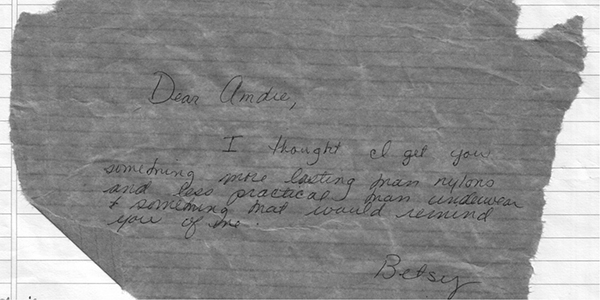 Dear Amdie,
I thought I get you
something more lasting than nylons
and less practical than underwear
& something that would remind
you of me.
Betsy